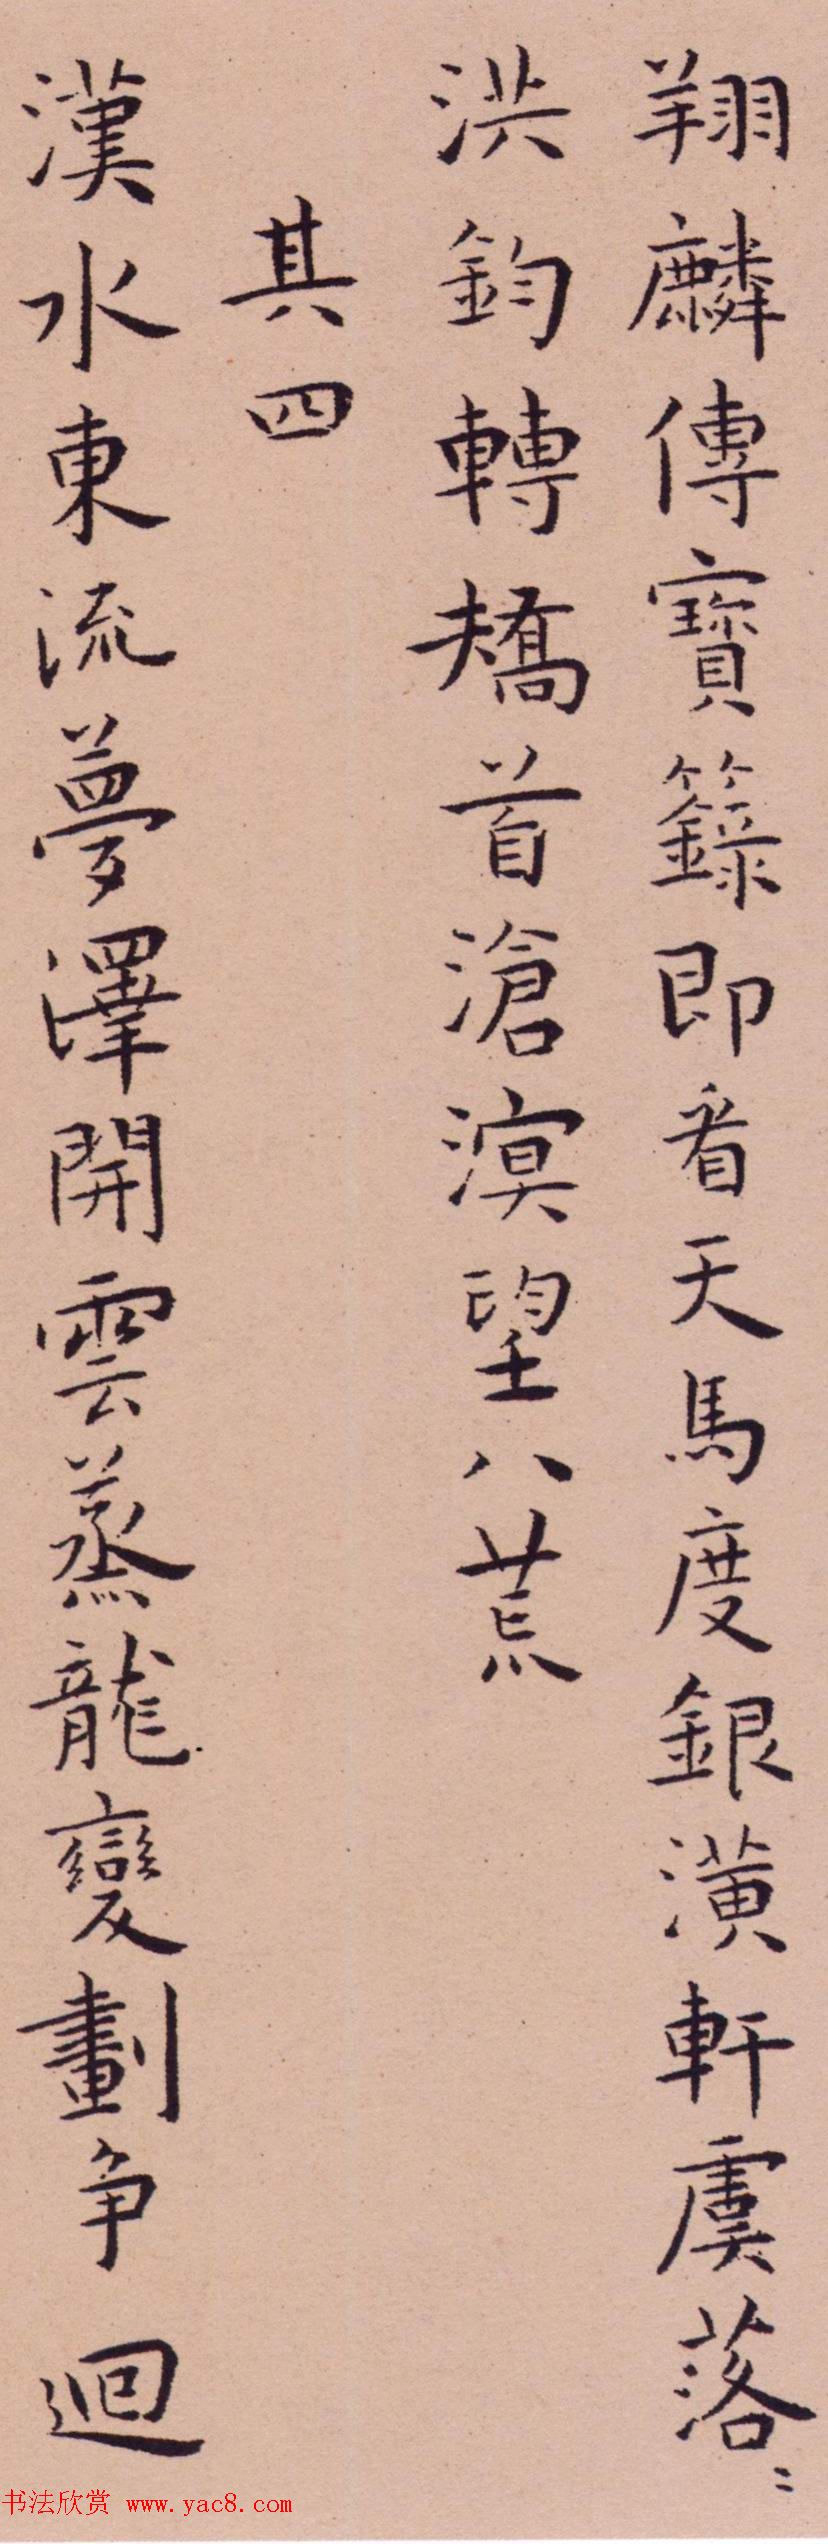 翔麟傳寶籙即看天馬度銀潢軒虞落〻
洪鈞轉矯首滄溟望八荒
其四
漢水東流夢澤開雲蒸龍變劃争迴
书法欣赏 www.yac8.com